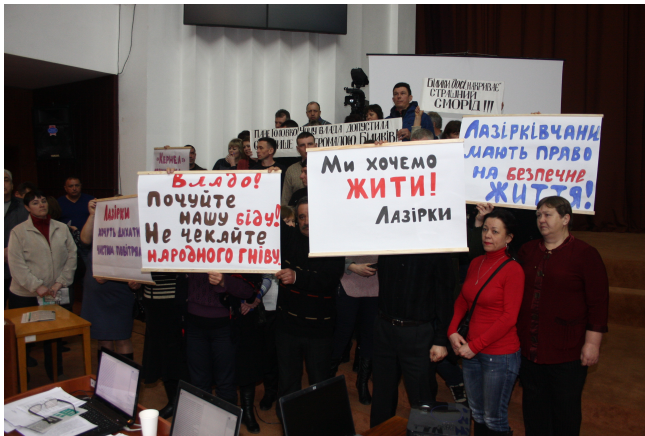 ДОСІ НАКРИВАЄ
СТРАШНИЙ
СМОРІД!!!
ВЛАДА ДОПУСТИЛА
ЛАЗІРКІВЧАНИ
МАЮТЬ ПРАВО
НА БЕЗПЕЧНЕ
ЖИТТЯ!
Ми хочемо
ЖИТИ!
Лазірки
Владо!
Почуйте
нашу біду!
Не чекайте
народного гніву
Лазірки
хочуть дихати
чистим повітрям